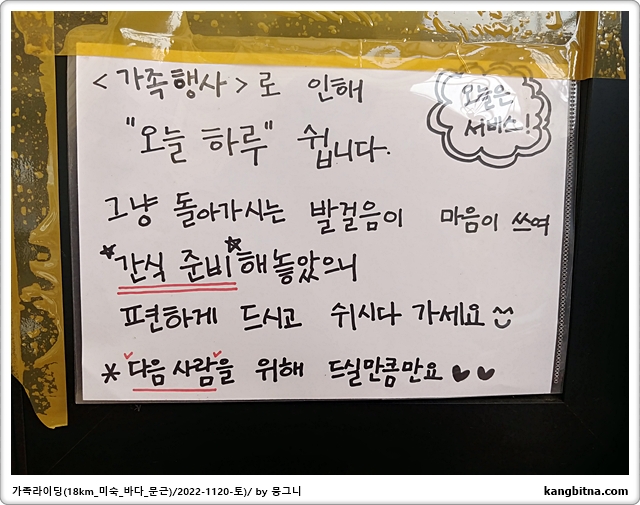 <가족행사>로 인해
오늘은
서비스!
"오늘 하루" 쉽니다.
그냥 돌아가시는 발걸음이 마음이 쓰여
*간식 준비*해놓았으니
편하게 드시고 쉬시다 가세요
* 다음 사람을 위해 드실만큼만요 ♥♥
가족라이딩(18km_미숙_바다_문근)/2022-1120-토)/ by 뭉그니
kangbitna.com